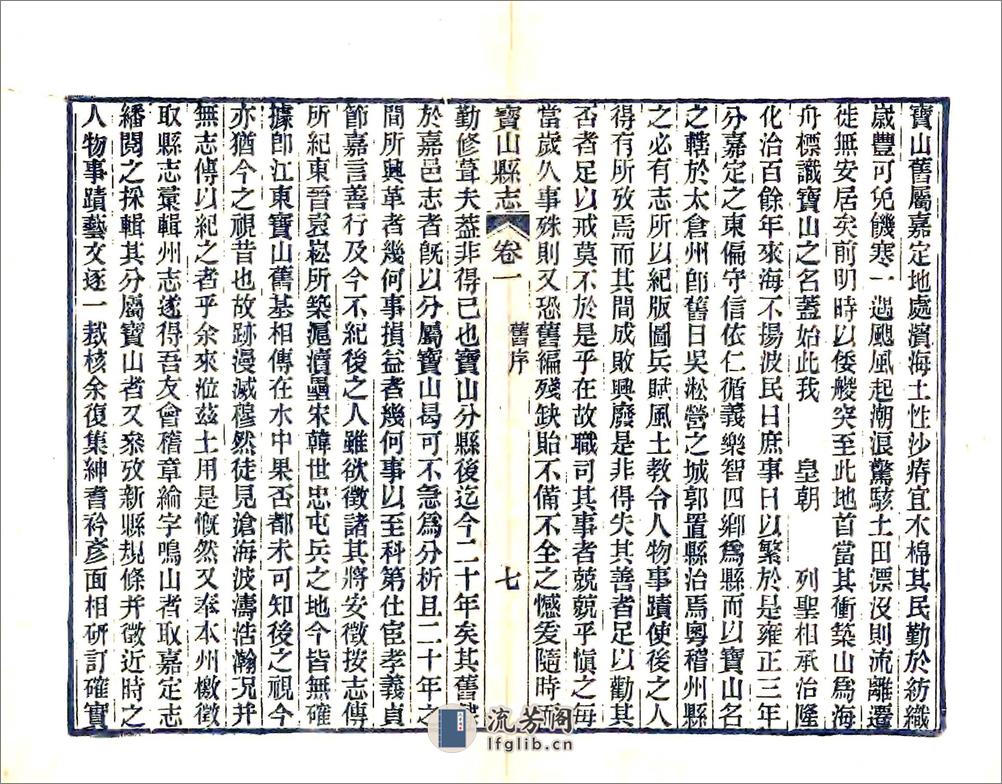 寶山舊屬嘉定地處濱海土性沙瘠宜木棉其民勤於紡織
歲豐可免饑寒一遇颶風起潮浪驚駭土田漂沒則流離遷
徙無安居矣前明時以倭艘突至此地首當其衝築山為海
舟標識寶山之名蓋始此我 皇朝 列聖相承治隆
化洽百餘年來海不揚波民日庶事日以繁於是雍正三年
分嘉定之東偏守信依仁循義樂智四鄉為縣而以寶山名
之轄於太倉州卽舊日吳淞營之城郭置縣治焉粵稽州縣
之必有志所以紀版圖兵賦風土教令人物事蹟使後之人
得有所攷焉而其間成敗興廢是非得失其善者足以勸其
否者足以戒莫不於是乎在故職司其事者兢兢乎愼之每
當歲久事殊則又恐舊編殘缺貽不備不全之憾爰隨時
寶山縣志 卷一 舊序 七
勤修葺夫葢非得已也寶山分縣後迄今二十年矣其舊
於嘉邑志者旣以分屬寶山曷可不急為分析且二十年之
間所興革者幾何事損益者幾何事以至科第仕宦孝義貞
節嘉言善行及今不紀後之人雖欲徵諸其將安徵按志傳
所紀東晉袁崧所築滬瀆壘宋韓世忠屯兵之地今皆無確
據卽江東寶山舊基相傳在水中果否都未可知後之視今
亦猶今之視昔也故跡漫滅穆然徒見滄海波濤浩瀚况幷
無志傳以紀之者乎余來涖茲土用是慨然又奉本州檄徵
取縣志稾輯州志遂得吾友會稽章綸字鳴山者取嘉定志
繙閱之採輯其分屬寶山者又叅攷新縣規條幷徵近時之
人物事蹟藝文逐一裁核余復集紳耆衿彥面相硏訂確實
流芳閣
lfglib.cn